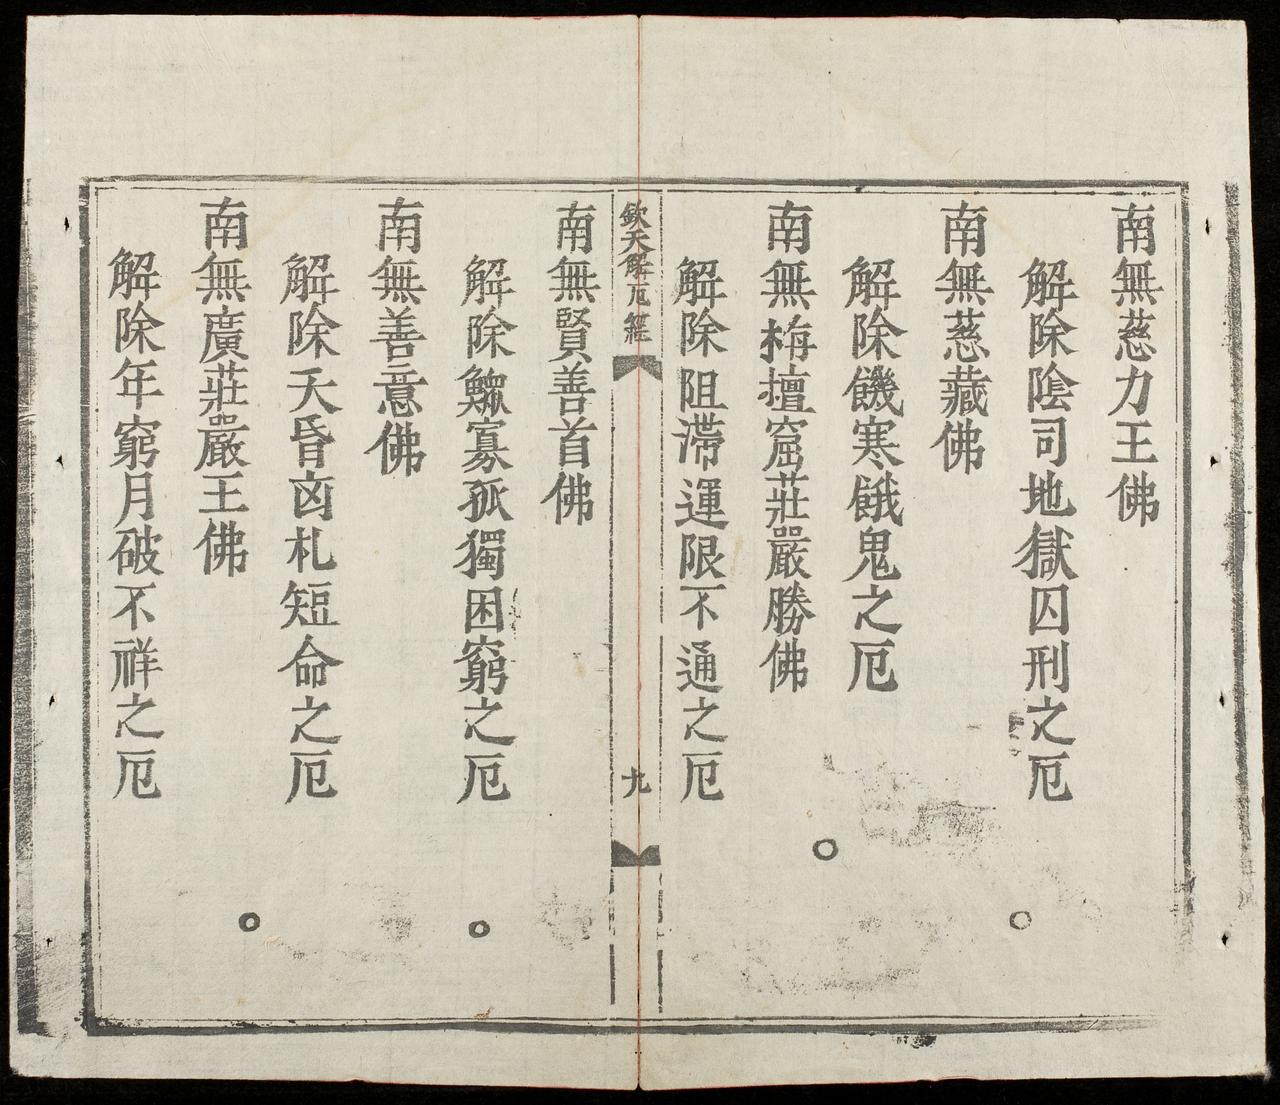 南無慈力王佛
解除陰司地獄囚刑之厄
南無慈藏佛
解除饑寒餓鬼之厄
南無栴檀窟莊嚴勝佛
解除阻滯運限不通之厄
欽天解厄經
九
南無賢善首佛
解除鰥寡孤獨困窮之厄
南無善意佛
解除夭昏凶札短命之厄
南無廣莊嚴王佛
解除年窮月破不祥之厄